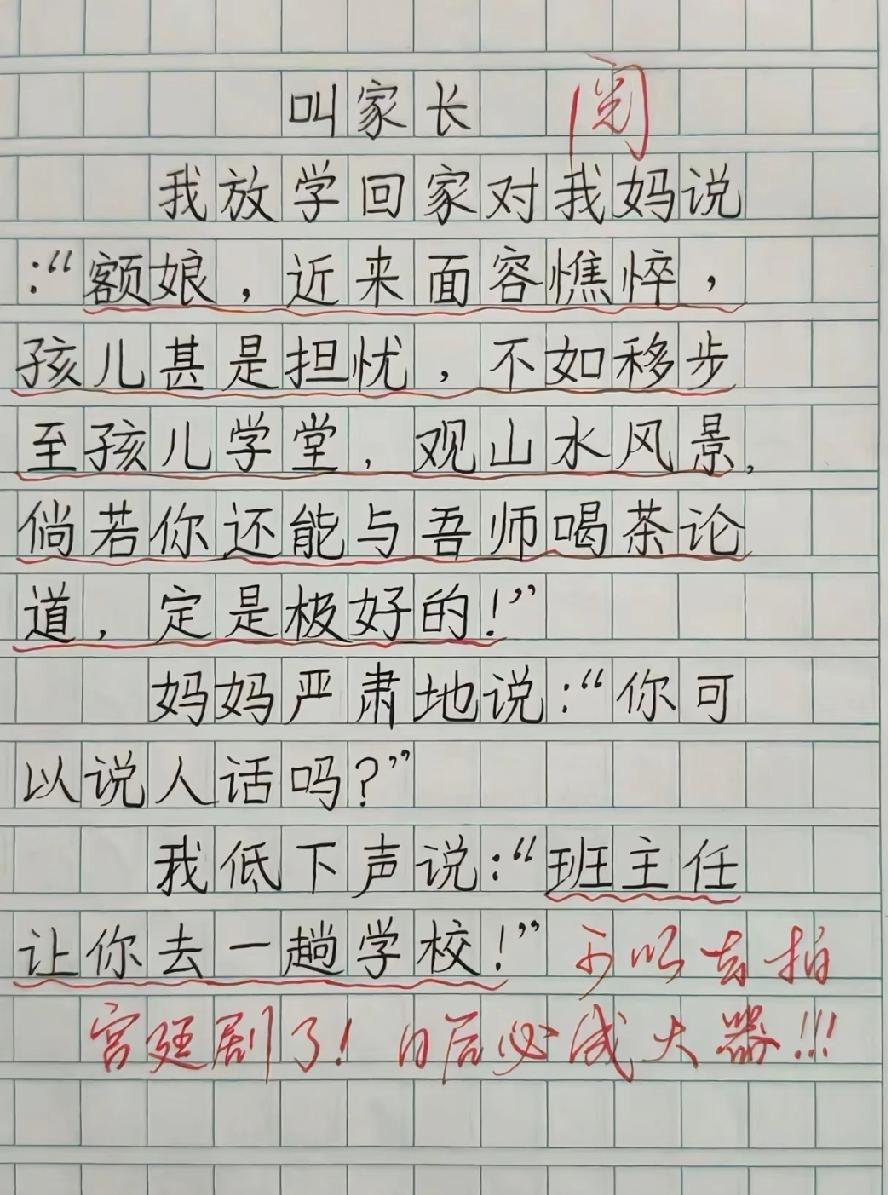 叫家长 阅
我放学回家对我妈说
:“额娘，近来面容憔悴，
孩儿甚是担忧，不如移步
至孩儿学堂，观山水风景，
倘若你还能与吾师喝茶论
道，定是极好的!”
妈妈严肃地说:“你可
以说人话吗?”
我低下声说:“班主任
让你去一趟学校!” 可以去拍
宫廷剧了! 日后必成大器!!!